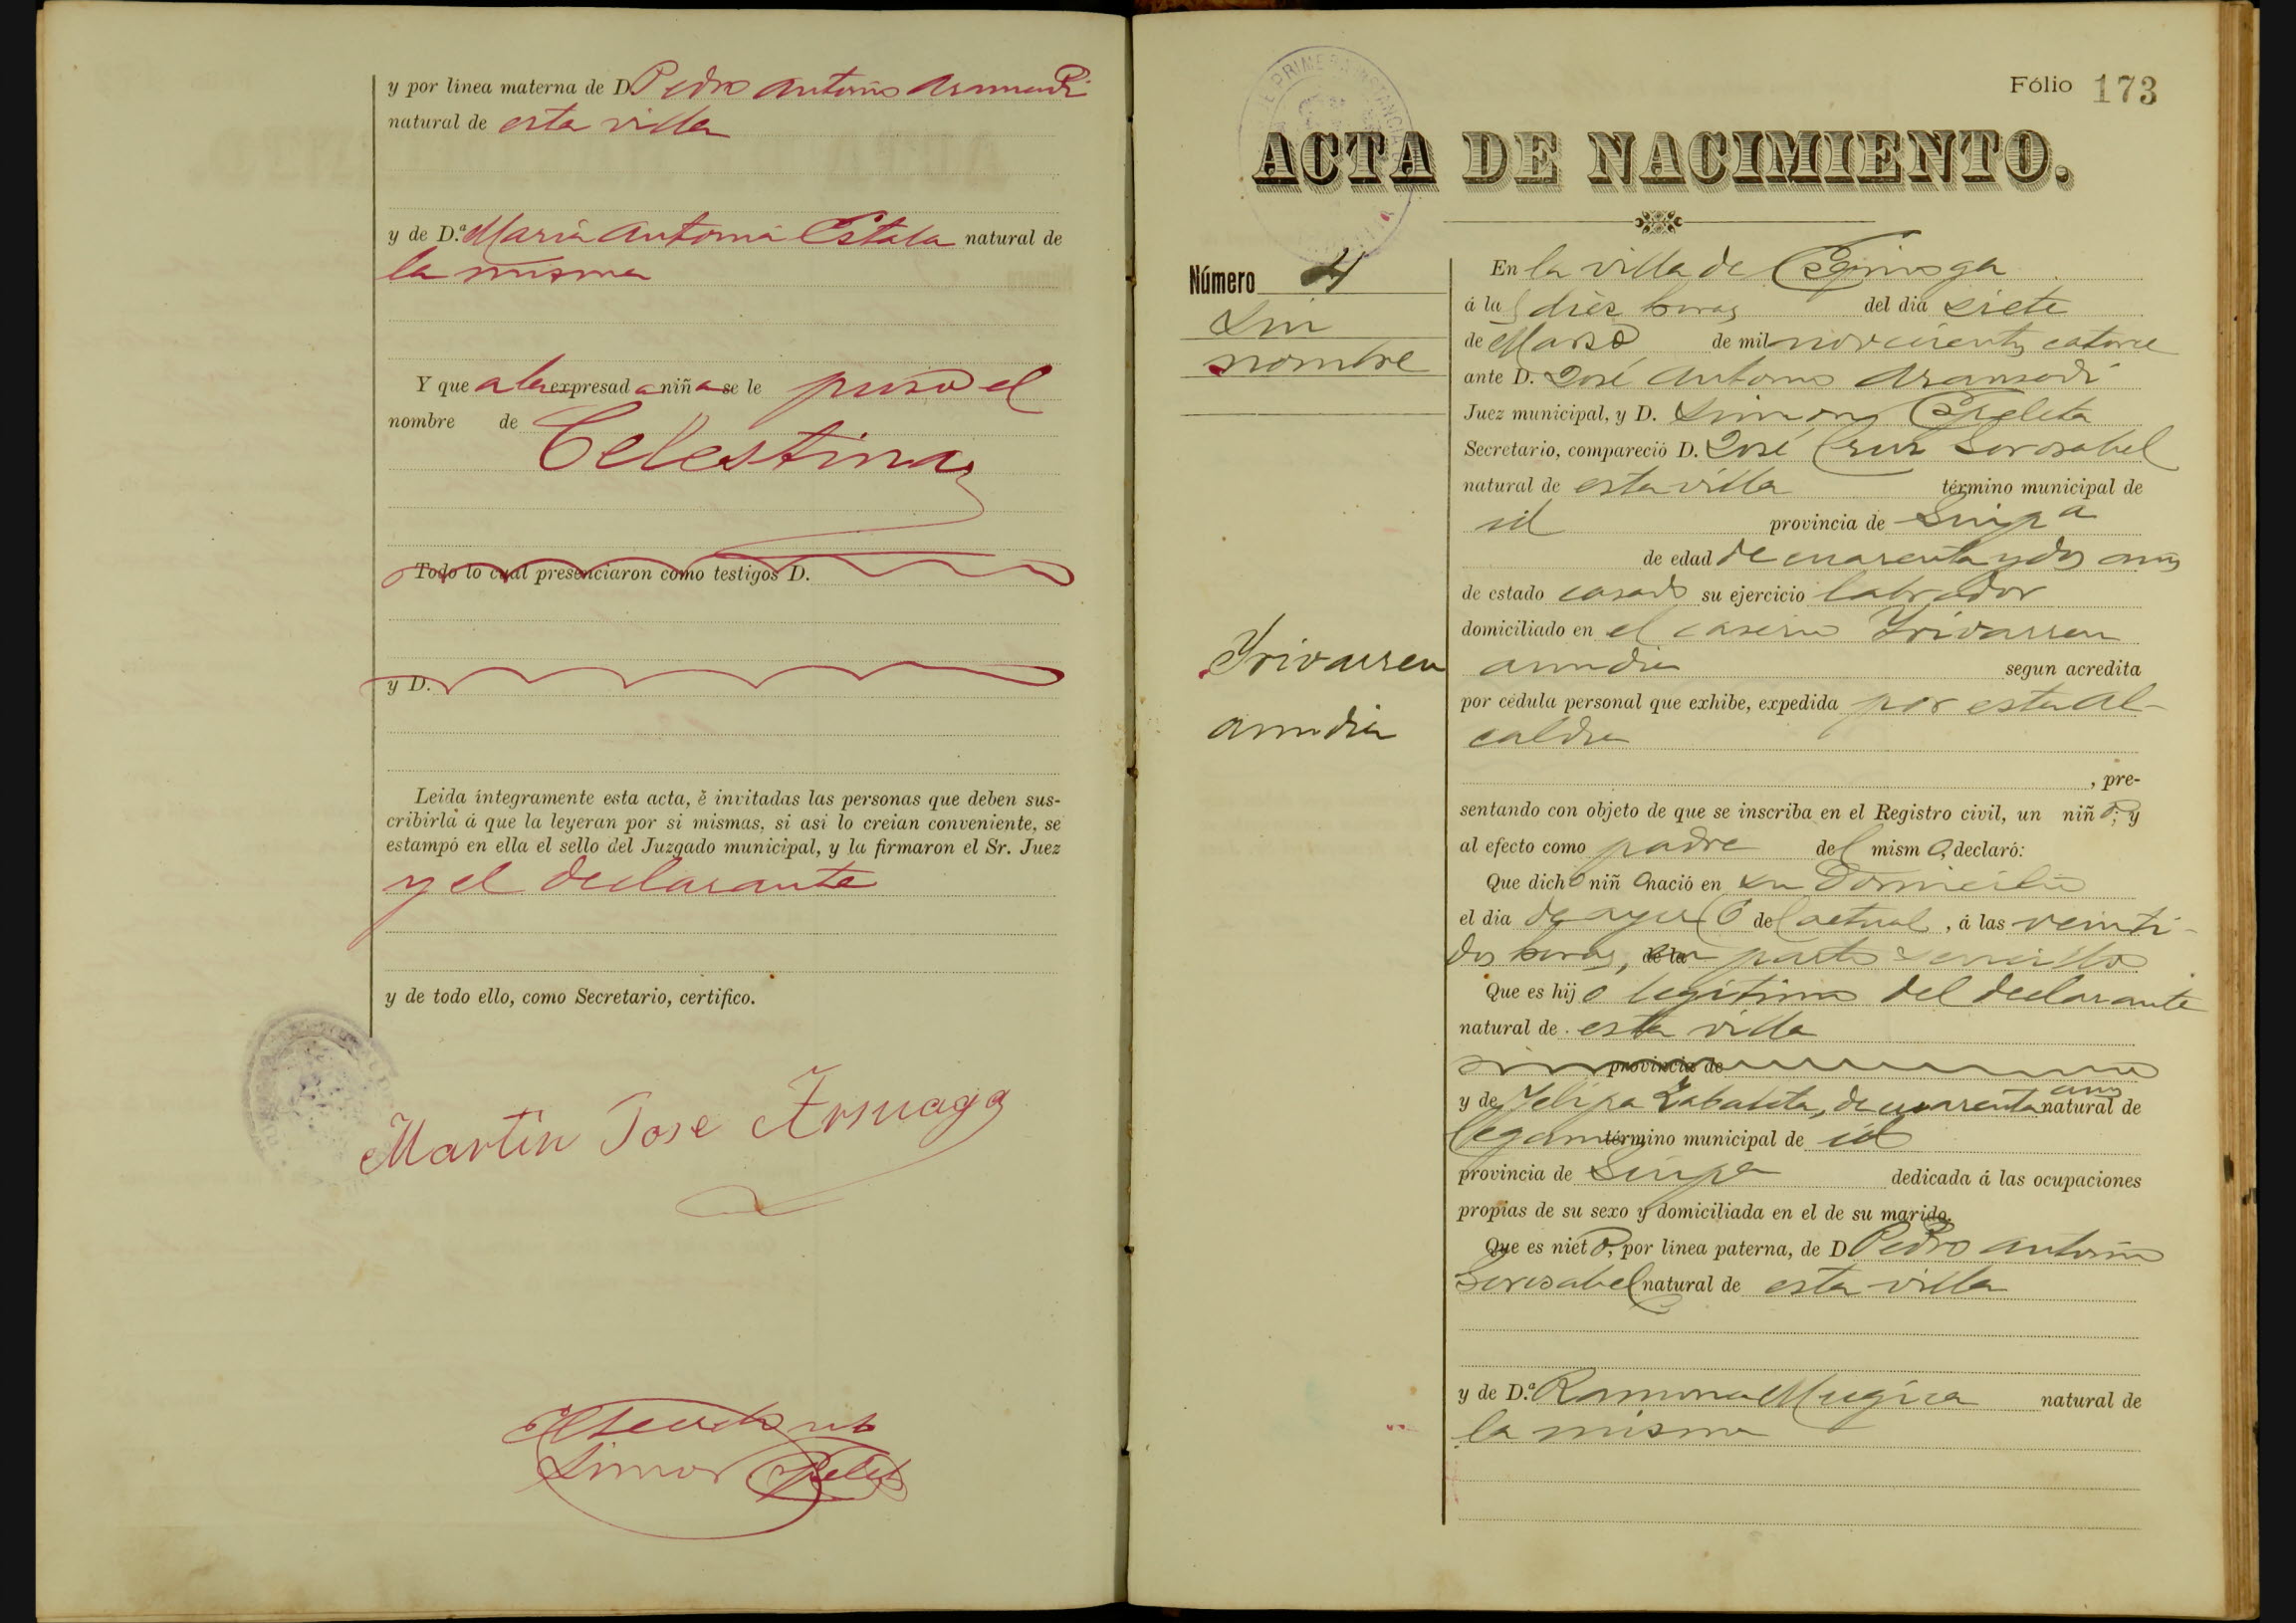 y por línea materna de D Pedro Antonio Aramendi
natural de esta villa
y de D.ª Maria Antonia Estala natural de
la misma
Y que a la expresada niña se le puso el
nombre de
Celestina
Todo lo cual presenciaron como testigos D.
y D.
Leida íntegramente esta acta, é invitadas las personas que deben sus-
cribirla á que la leyeran por si mismas, si asi lo creian conveniente, se
estampó en ella el sello del Juzgado municipal, y la firmaron el Sr. Juez
y el declarante
y de todo ello, como Secretario, certifico.
Martin Jose Arsuaga
Simon
Fólio 173
PRIMERA INSTANCIA
ACTA DE NACIMIENTO.
Número 4
Sin
nombre
Yrivarren
aundia
En la villa de
á las diez horas del dia siete
de Marzo de mil novecientos catorce
ante D. José Antonio Aramendi
Juez municipal, y D. Simon
Secretario, compareció D. José Cruz Sorozabel
natural de esta villa término municipal de
id provincia de Guipa
de edad de cuarenta y dos años
de estado casado su ejercicio labrador
domiciliado en el caserio Yrivarren
aundia segun acredita
por cédula personal que exhibe, expedida por esta Al-
caldia
, pre-
sentando con objeto de que se inscriba en el Registro civil, un niño; y
al efecto como padre del mismo, declaró:
Que dicho niño nació en su domicilio
el dia de ayer 6 del actual, á las veinti-
dos horas, de la parto sencillo
Que es hijo legitimo del declarante
natural de esta villa
provincia de
y de Felipa Zabaleta, de cuarenta años natural de
término municipal de id
provincia de Guipa dedicada á las ocupaciones
propias de su sexo y domiciliada en el de su marido.
Que es nieto, por línea paterna, de D Pedro Antonio
Sorozabel natural de esta villa
y de D.ª Ramona Mugica natural de
la misma